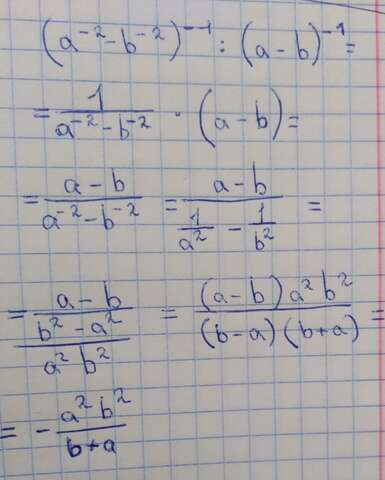 (a⁻² - b⁻²)⁻¹ : (a - b)⁻¹ =
= 1/(a⁻² - b⁻²) · (a - b) =
= (a - b)/(a⁻² - b⁻²) = (a - b)/(1/a² - 1/b²) =
= (a - b)/((b² - a²)/(a² b²)) = ((a - b) a² b²)/((b - a)(b + a)) =
= - (a² b²)/(b + a)